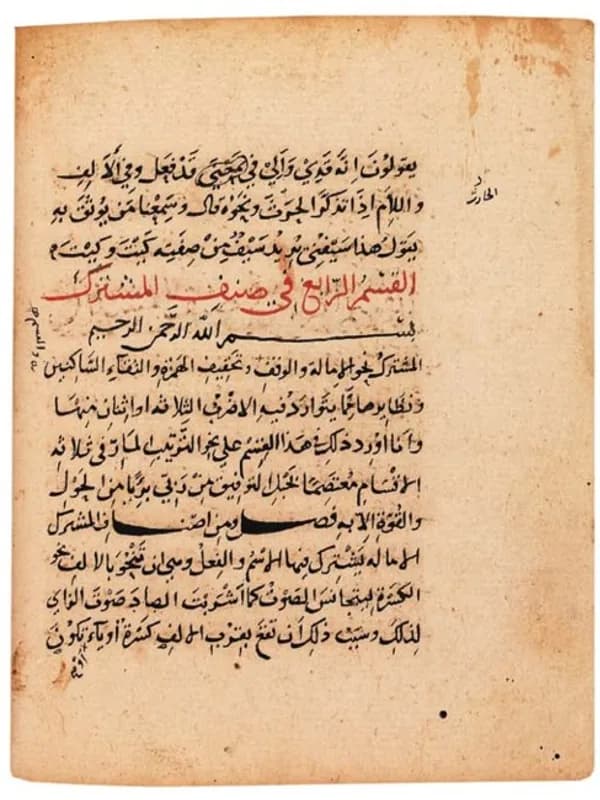 يقولُونَ اِنَّه قَدِي وَاَلِي في المَعْنَى قَدْ فَعَل وفي الاَلِفِ
واللامِ اِذَا تذكّرَ الحرثَ ونحوَه قال وسَمِعْنا مَن يُوثَقُ بهِ
يقولُ هذا سَيْفُنِي يُريد سَيْفٌ مِنْ صِفَتِه كَيْتَ وكَيْتَ
الحارث
القسمُ الرابع في صنف المشترك
بسم الله الرحمن الرحيم
المشترك نحو الامالة والوقف وتخفيف الهمزة والتقاء الساكنين
ونظايرها ممّا يتوارد فيه الاضرب الثلاثة او اثنان منها
وانا اورد ذلك في هذا القسم على نحو الترتيب المارّ في ثلاثة
الاقسام معتصمًا بحبل التوفيق من ربّي بريًّا من الحول
والقوّة الا به فصل ومن اصناف المشترك
الامالة يشترك فيها الاسم والفعل وهي ان تنحو بالالف نحو
الكسرة ليتجانس الصوت كما اشربت الصاد صوت الزاي
لذلك وسبب ذلك ان تقع بقرب الالف كسرة أو ياء او تكون